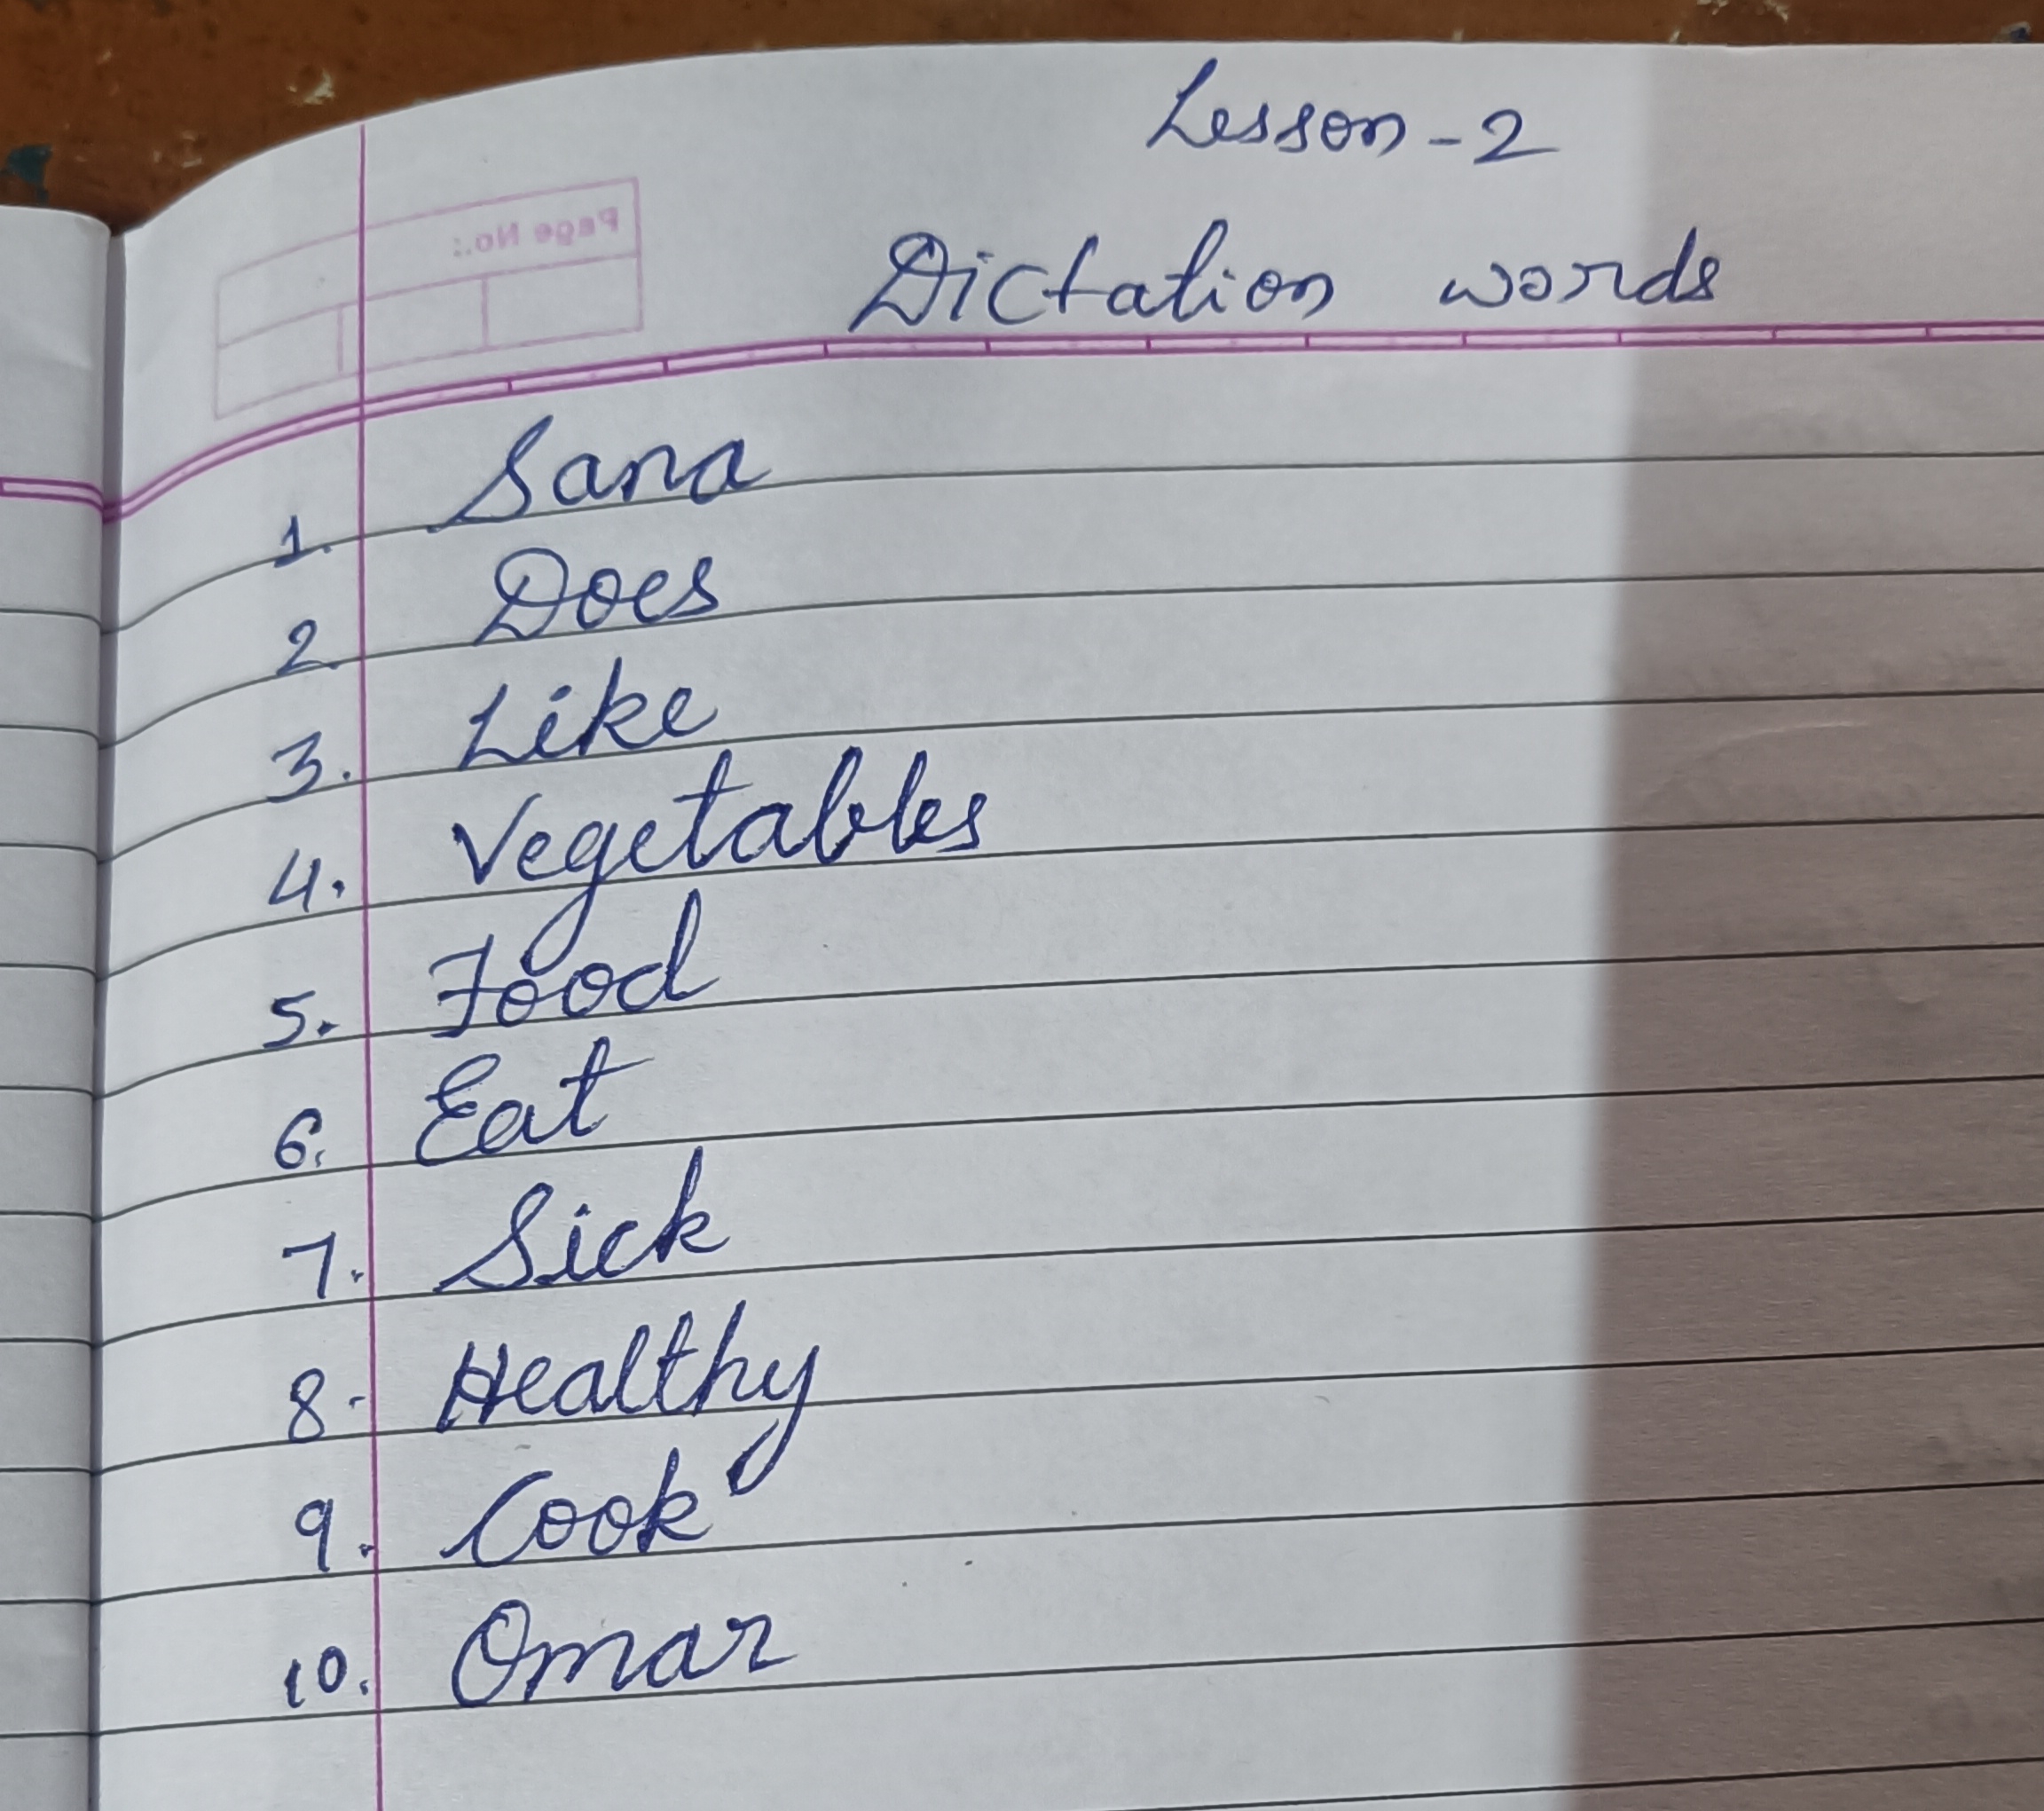 Lesson - 2
Page No.:
Dictation words
1. Sana
2. Does
3. Like
4. Vegetables
5. Food
6. Eat
7. Sick
8. Healthy
9. Cook
10. Omar